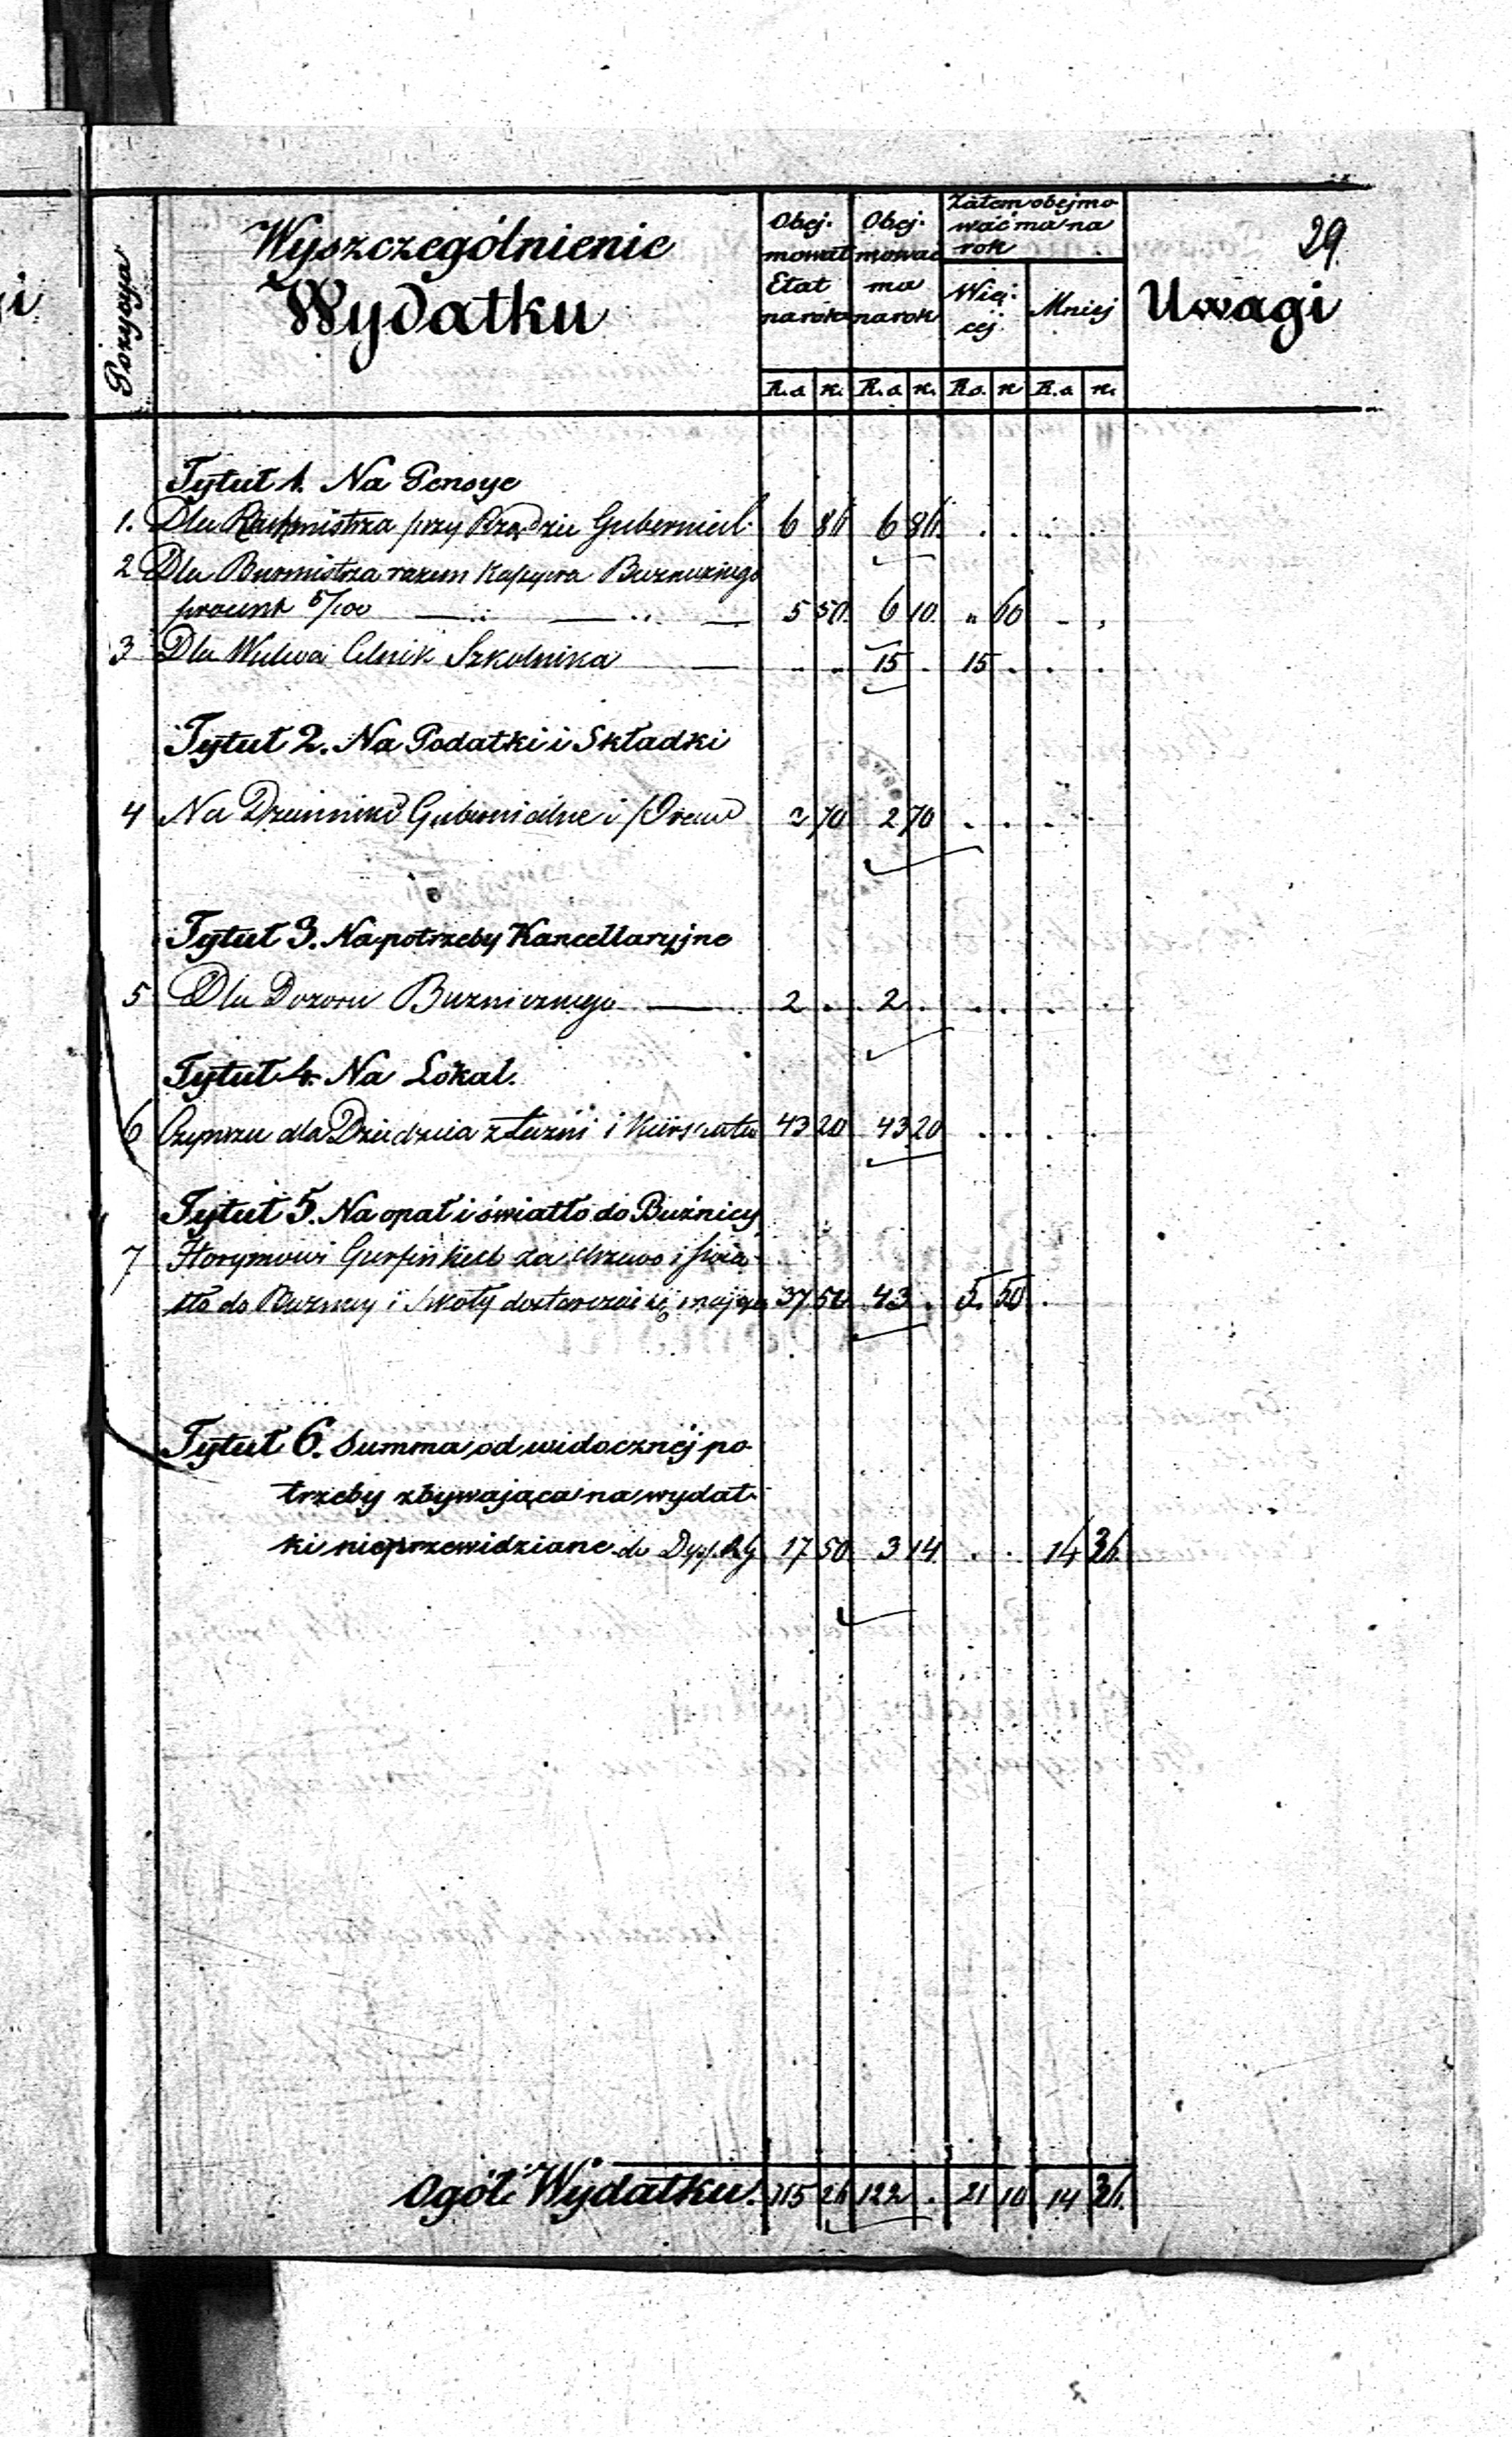 29
Pozycya
Wyszczególnienie
Wydatku
Obej-
mował
Etat
na rok
Obej-
mować
ma
na rok
Zatem obejmo
wać ma na
rok
Wię-
cej
Mniej
Uwagi
R.s k. R.s k. R.s. k R.s k.
Tytuł 1. Na Pensye
1. Dla Rachmistrza przy Rządzie Gubernial. 6 86 6 86
2 Dla Burmistrza razem Kassyera
procent 5/100 5 50 6 10 " 60
3 Dla Szkolnika 15 . 15 .
Tytuł 2. Na Podatki i Składki
4 Na Dzienniki Gubernialne i Praw 2 70 2 70
Tytuł 3. Na potrzeby Kancellaryjne
5 Dla Dozoru Bużnicznego 2 . 2 .
Tytuł 4. Na Lokal.
6 Czynszu dla Dziedzica z Łaźni i 43 20 43 20
Tytuł 5. Na opał i światło do Bużnicy
7 Gurfinkiel za drzewo i świa-
tło do Bużnicy i Szkoły dostarczać się mające 37 50 43 . 5 50
Tytuł 6. Summa od widocznéj po
trzeby zbywająca na wydat-
ki nieprzewidziane do Dysp. R.G. 17 50 3 14 . . 14 36
Ogół Wydatku. 115 26 122 . 21 10 14 36